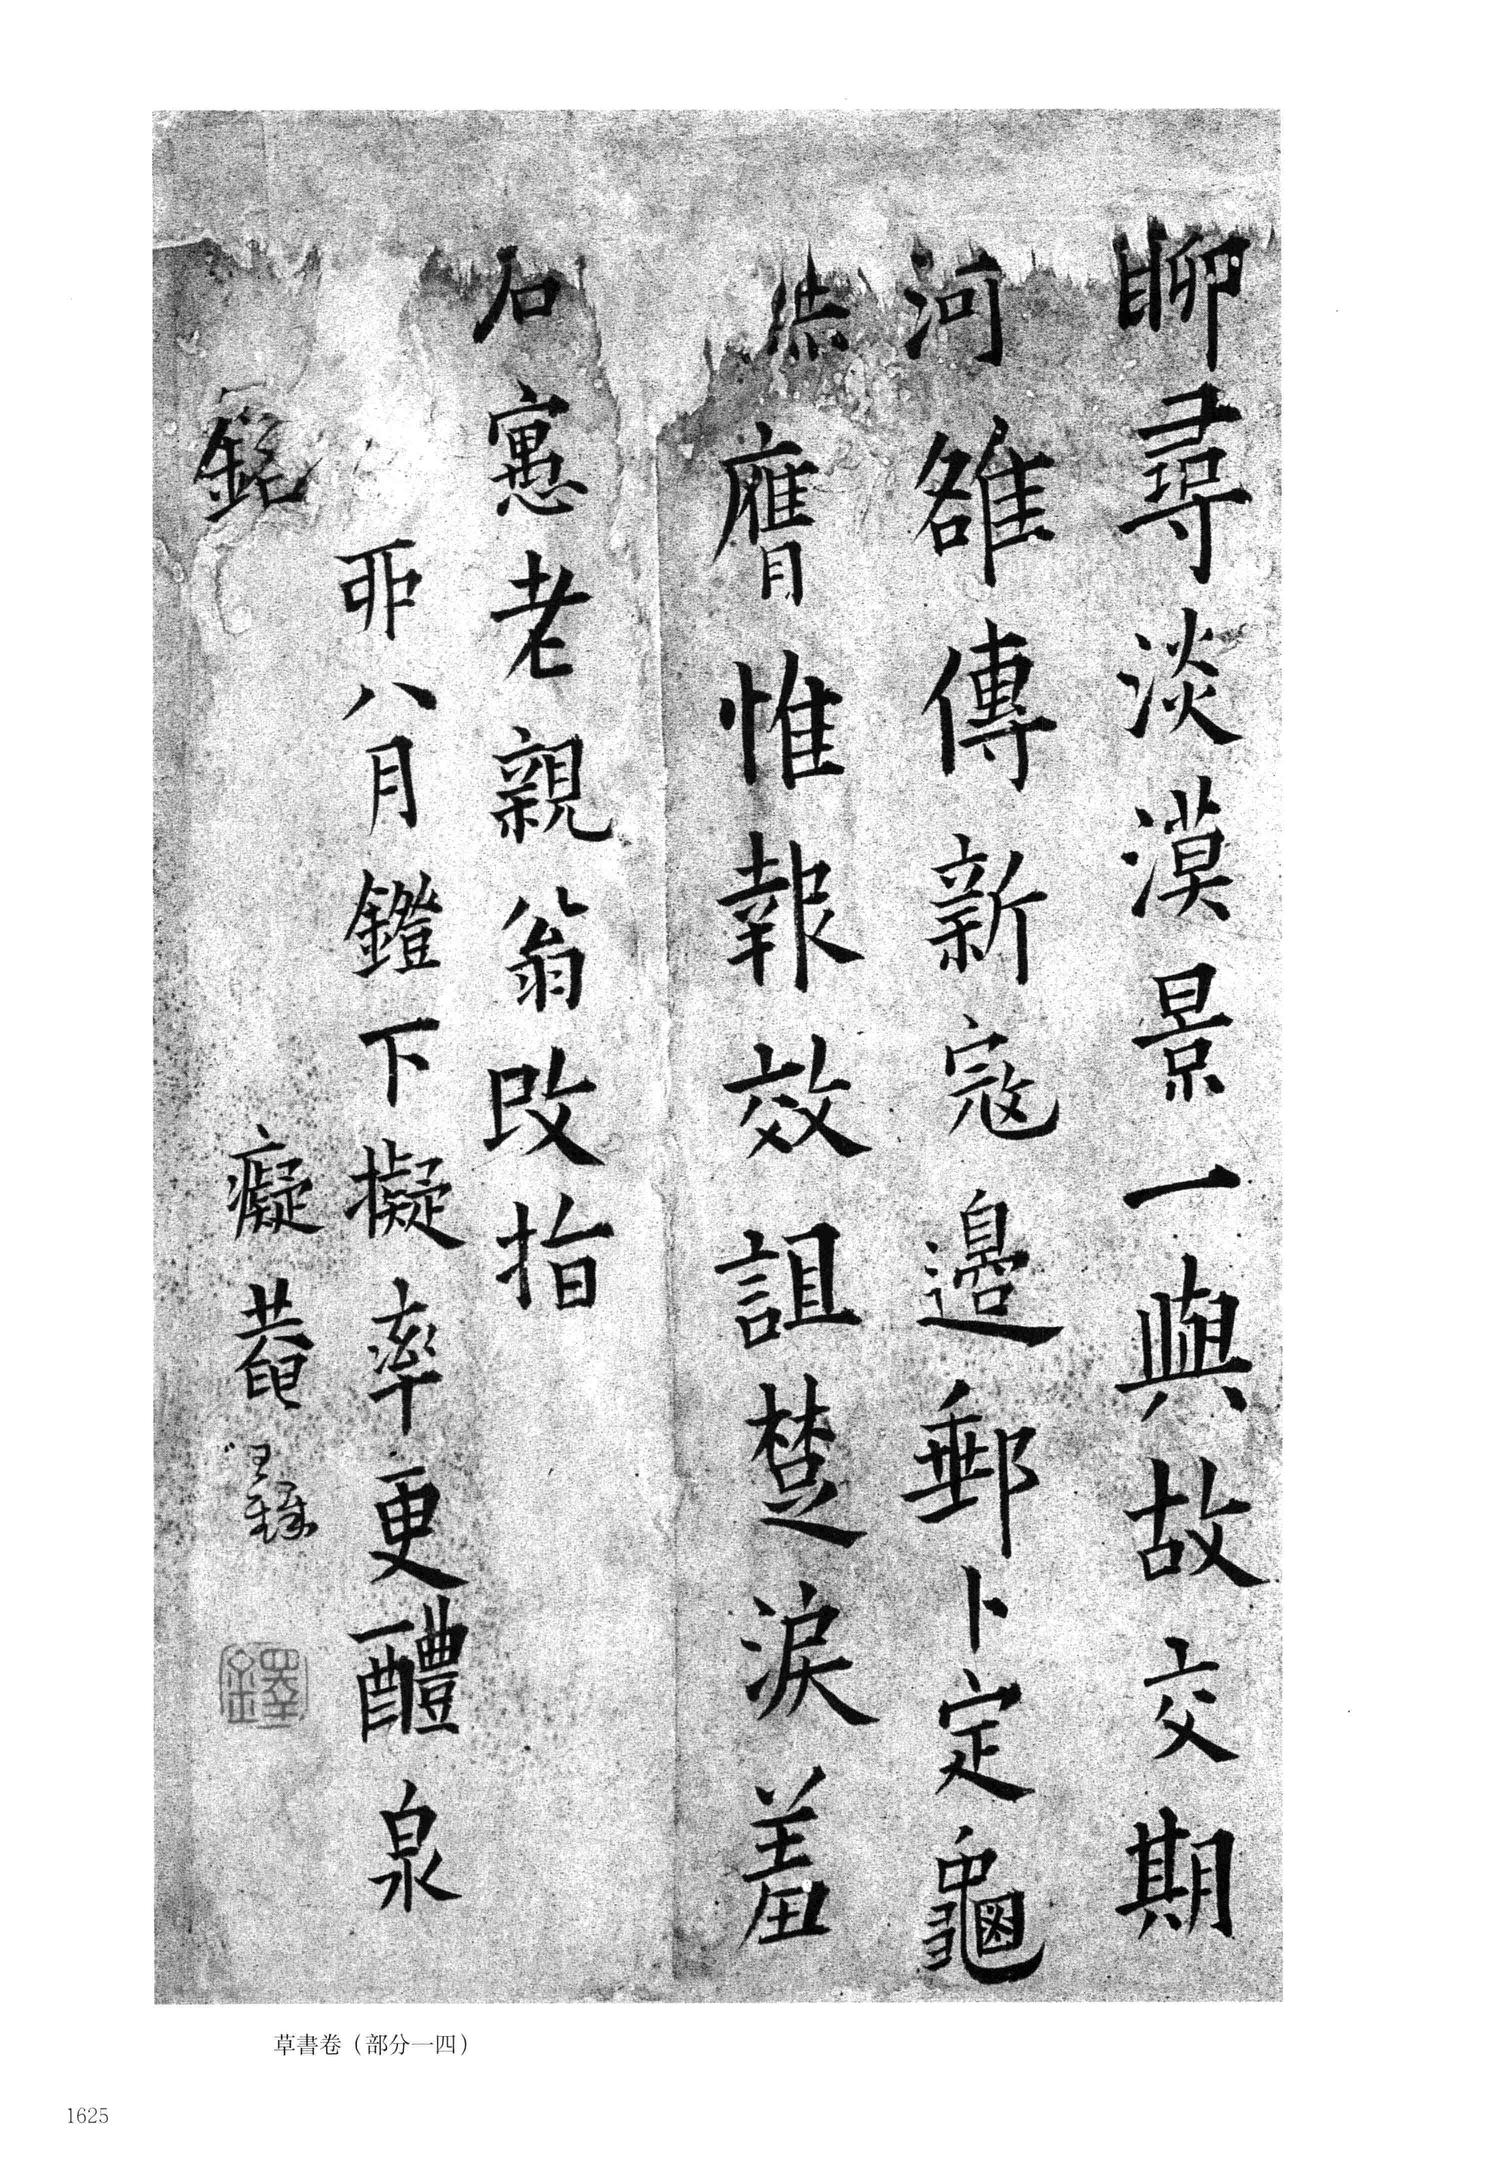 聊尋淡漠景一與故交期
河雒傳新寇邊郵卜定龜
膺惟報效詛楚淚羞
石寓老親翁改指
丣八月鐙下擬率更醴泉
銘
癡菴王鐸
鐸
草書卷（部分一四）
1625